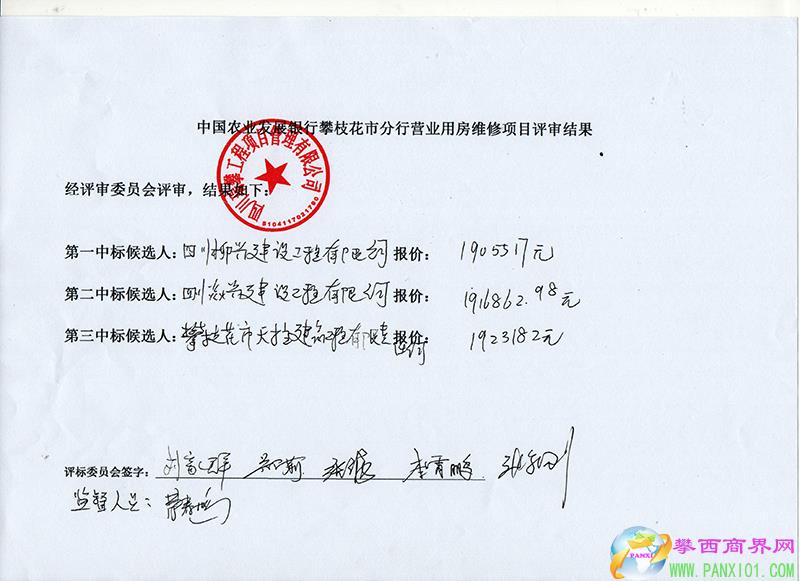 中国农业发展银行攀枝花市分行营业用房维修项目评审结果
经评审委员会评审，结果如下：
四川 攀工程项目管理有限公司
5104117021780
第一中标候选人：四川柳兴建设工程有限公司 报价： 1905517元
第二中标候选人：四川 兴建设工程有限公司 报价： 1916862.98元
第三中标候选人：攀枝花市天 建筑工程有限责任公司 报价： 1923182元
评标委员会签字：
监督人员：
攀西商界网
WWW.PANXI01.COM